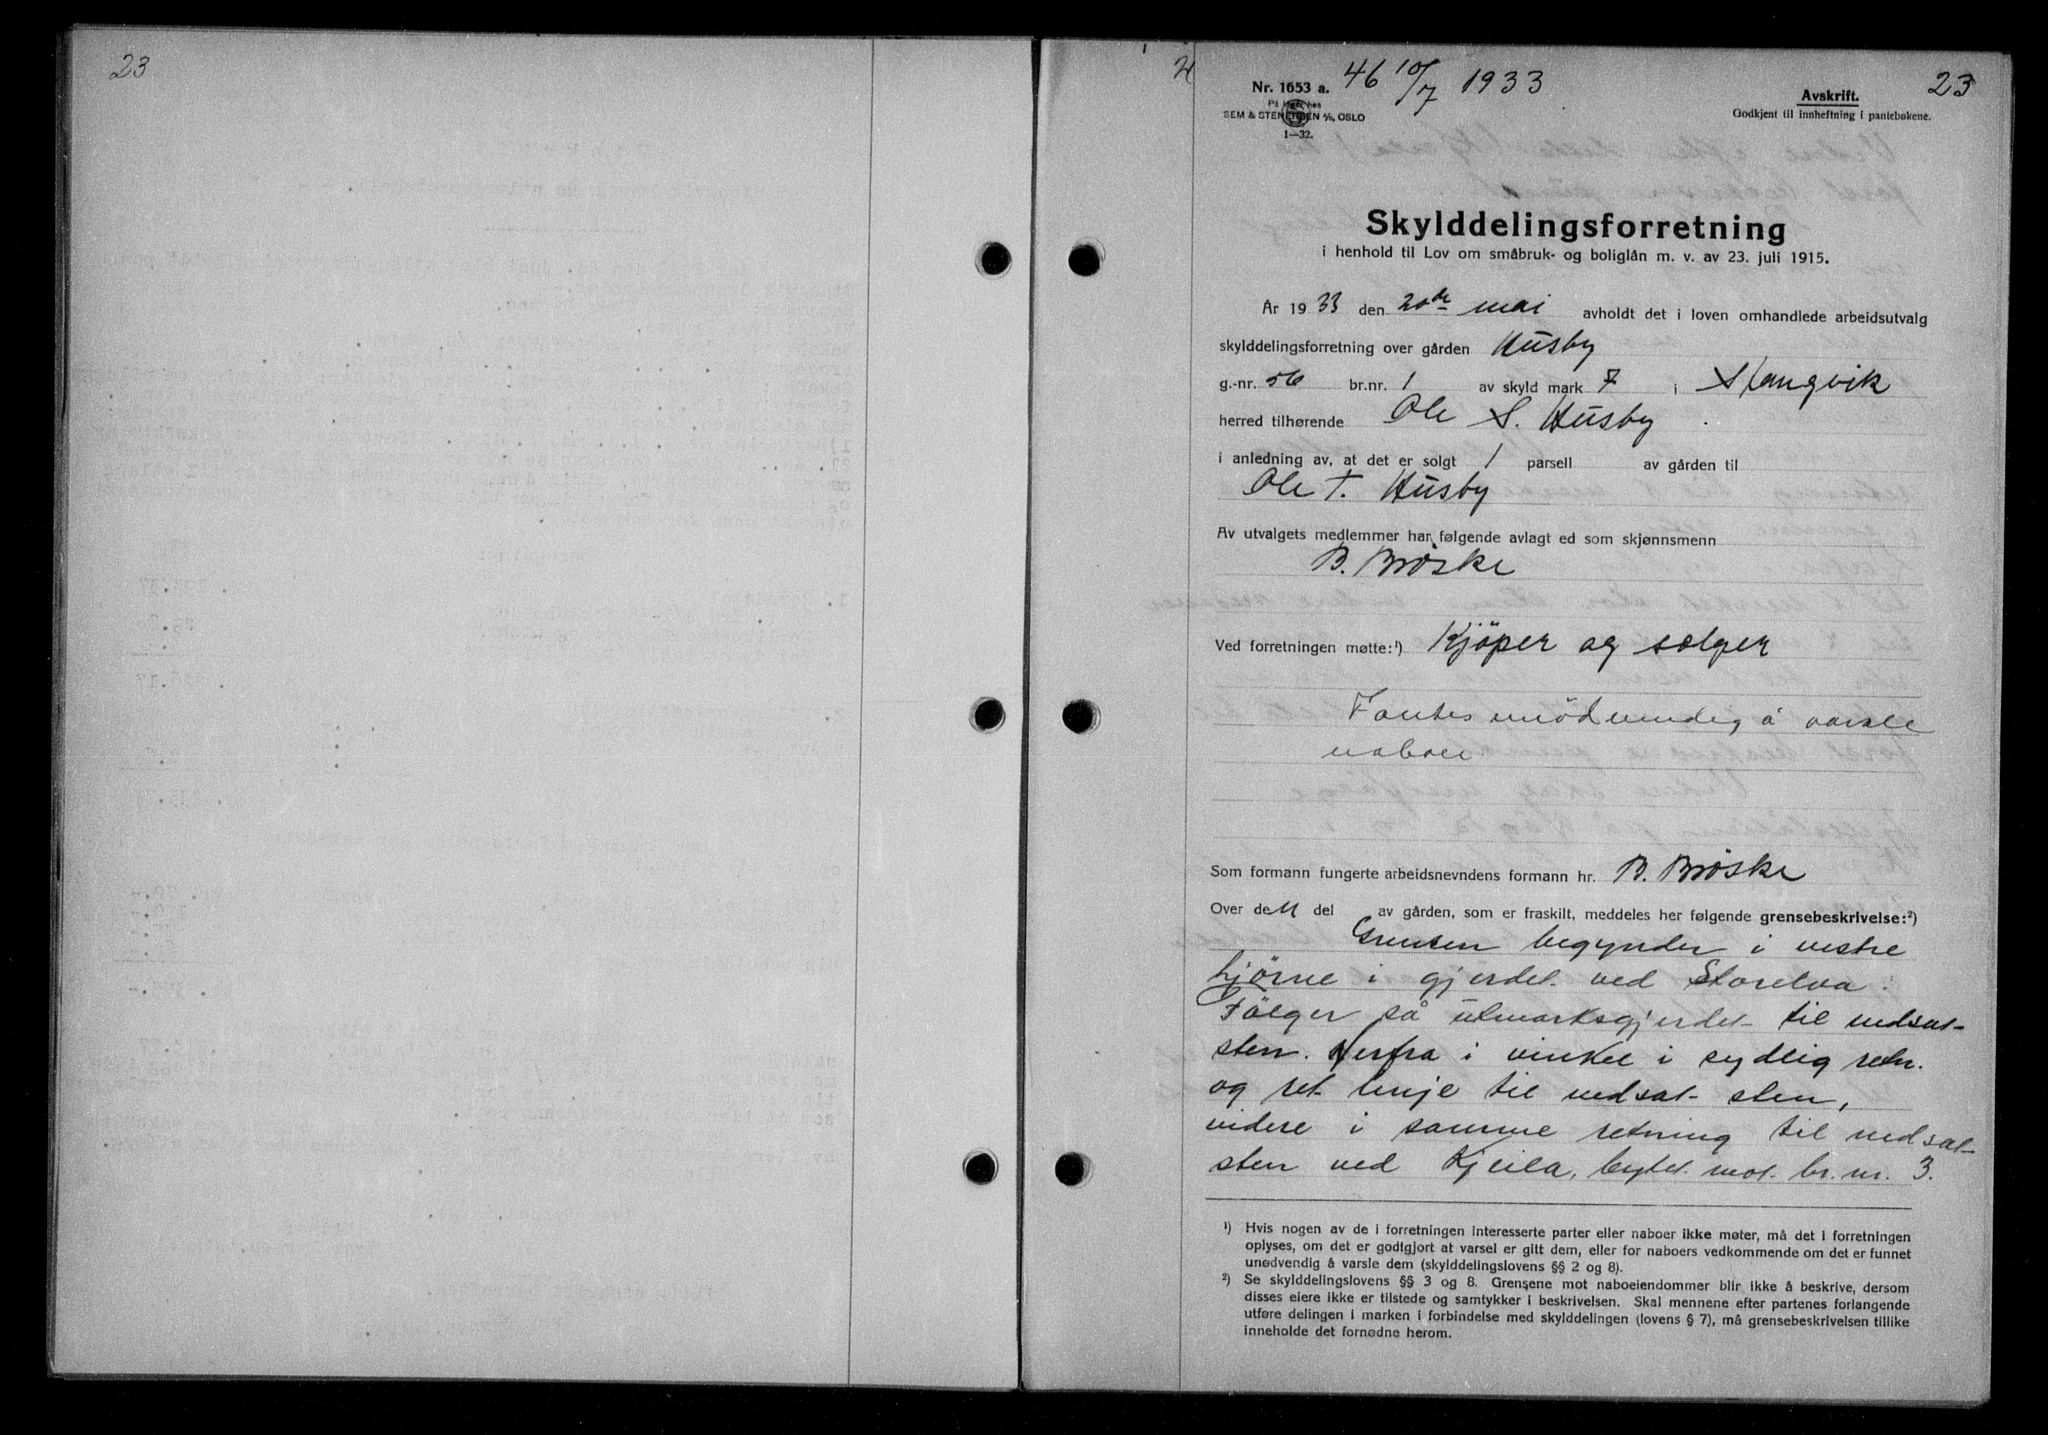 23
46 10/7 1933
23
Nr. 1653 a.
På lager hos
SEM & STENERSEN A/S, OSLO
1—32.
Avskrift.
Godkjent til innheftning i pantebøkene.
Skylddelingsforretning
i henhold til Lov om småbruk- og boliglån m. v. av 23. juli 1915.
År 1933 den 20de mai avholdt det i loven omhandlede arbeidsutvalg
skylddelingsforretning over gården Husby
g.-nr. 56 br.nr. 1 av skyld mark 7 i Stangvik
herred tilhørende Ole S. Husby
i anledning av, at det er solgt 1 parsell av gården til
Ole T. Husby
Av utvalgets medlemmer har følgende avlagt ed som skjønnsmenn
B. Brøske
Ved forretningen møtte:¹) Kjöper og selger
Fantes unödvendig å varsle
naboer
Som formann fungerte arbeidsnevndens formann hr. B. Brøske
Over den del av gården, som er fraskilt, meddeles her følgende grensebeskrivelse:²)
Grensen begynder i vestre
hjörne i gjerdet ved Storelva.
Fölger så utmarksgjerdet til nedsat
sten. Derfra i vinkel i sydlig retn.
og ret linje til nedsat sten,
videre i samme retning til nedsat
sten ved Kjeila, bytet mot br. nr. 3.
¹) Hvis nogen av de i forretningen interesserte parter eller naboer ikke møter, må det i forretningen
oplyses, om det er godtgjort at varsel er gitt dem, eller for naboers vedkommende om det er funnet
unødvendig å varsle dem (skylddelingslovens §§ 2 og 8).
²) Se skylddelingslovens §§ 3 og 8. Grensene mot naboeiendommer blir ikke å beskrive, dersom
disses eiere ikke er tilstede og samtykker i beskrivelsen. Skal mennene efter partenes forlangende
utføre delingen i marken i forbindelse med skylddelingen (lovens § 7), må grensebeskrivelsen tillike
inneholde det fornødne herom.